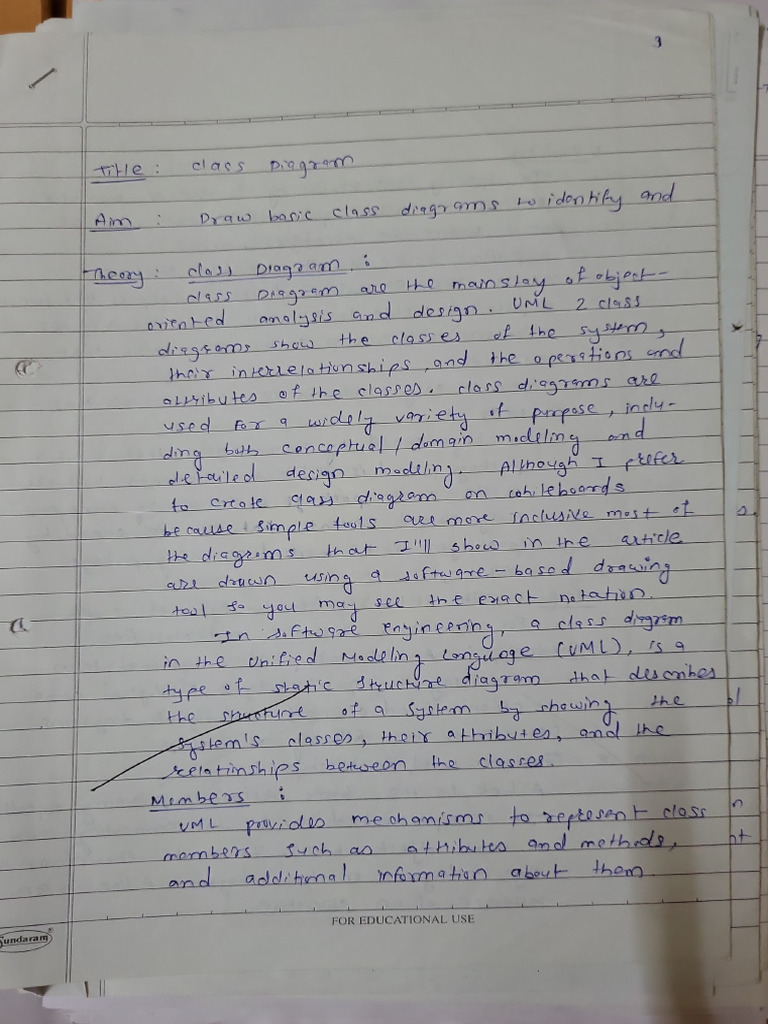 3
Title : Class Diagram
Aim : Draw basic class diagrams to identify and
Theory : class Diagram :
class Diagram are the mainstay of object-
oriented analysis and design. UML 2 class
diagrams show the classes of the system,
their interrelationships, and the operations and
attributes of the classes. class diagrams are
used for a widely variety of purpose, inclu-
ding both conceptual/domain modeling and
detailed design modeling. Although I prefer
to create class diagram on whiteboards
because simple tools are more inclusive most of
the diagrams that I'll show in the article
are drawn using a software-based drawing
tool so you may see the exact notation.
In software engineering, a class digram
in the Unified Modeling Language (UML), is a
type of static structure diagram that describes
the structure of a system by showing the
system's classes, their attributes, and the
relatinships between the classes.
Members :
UML provides mechanisms to represent class
members such as attributes and methods,
and additional information about them
FOR EDUCATIONAL USE
Sundaram